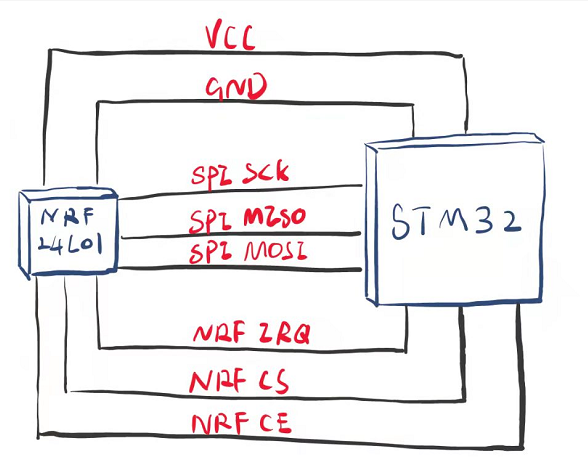 VCC
GND
SPI SCK
SPI MISO
SPI MOSI
NRF
24L01
STM32
NRF IRQ
NRF CS
NRF CE